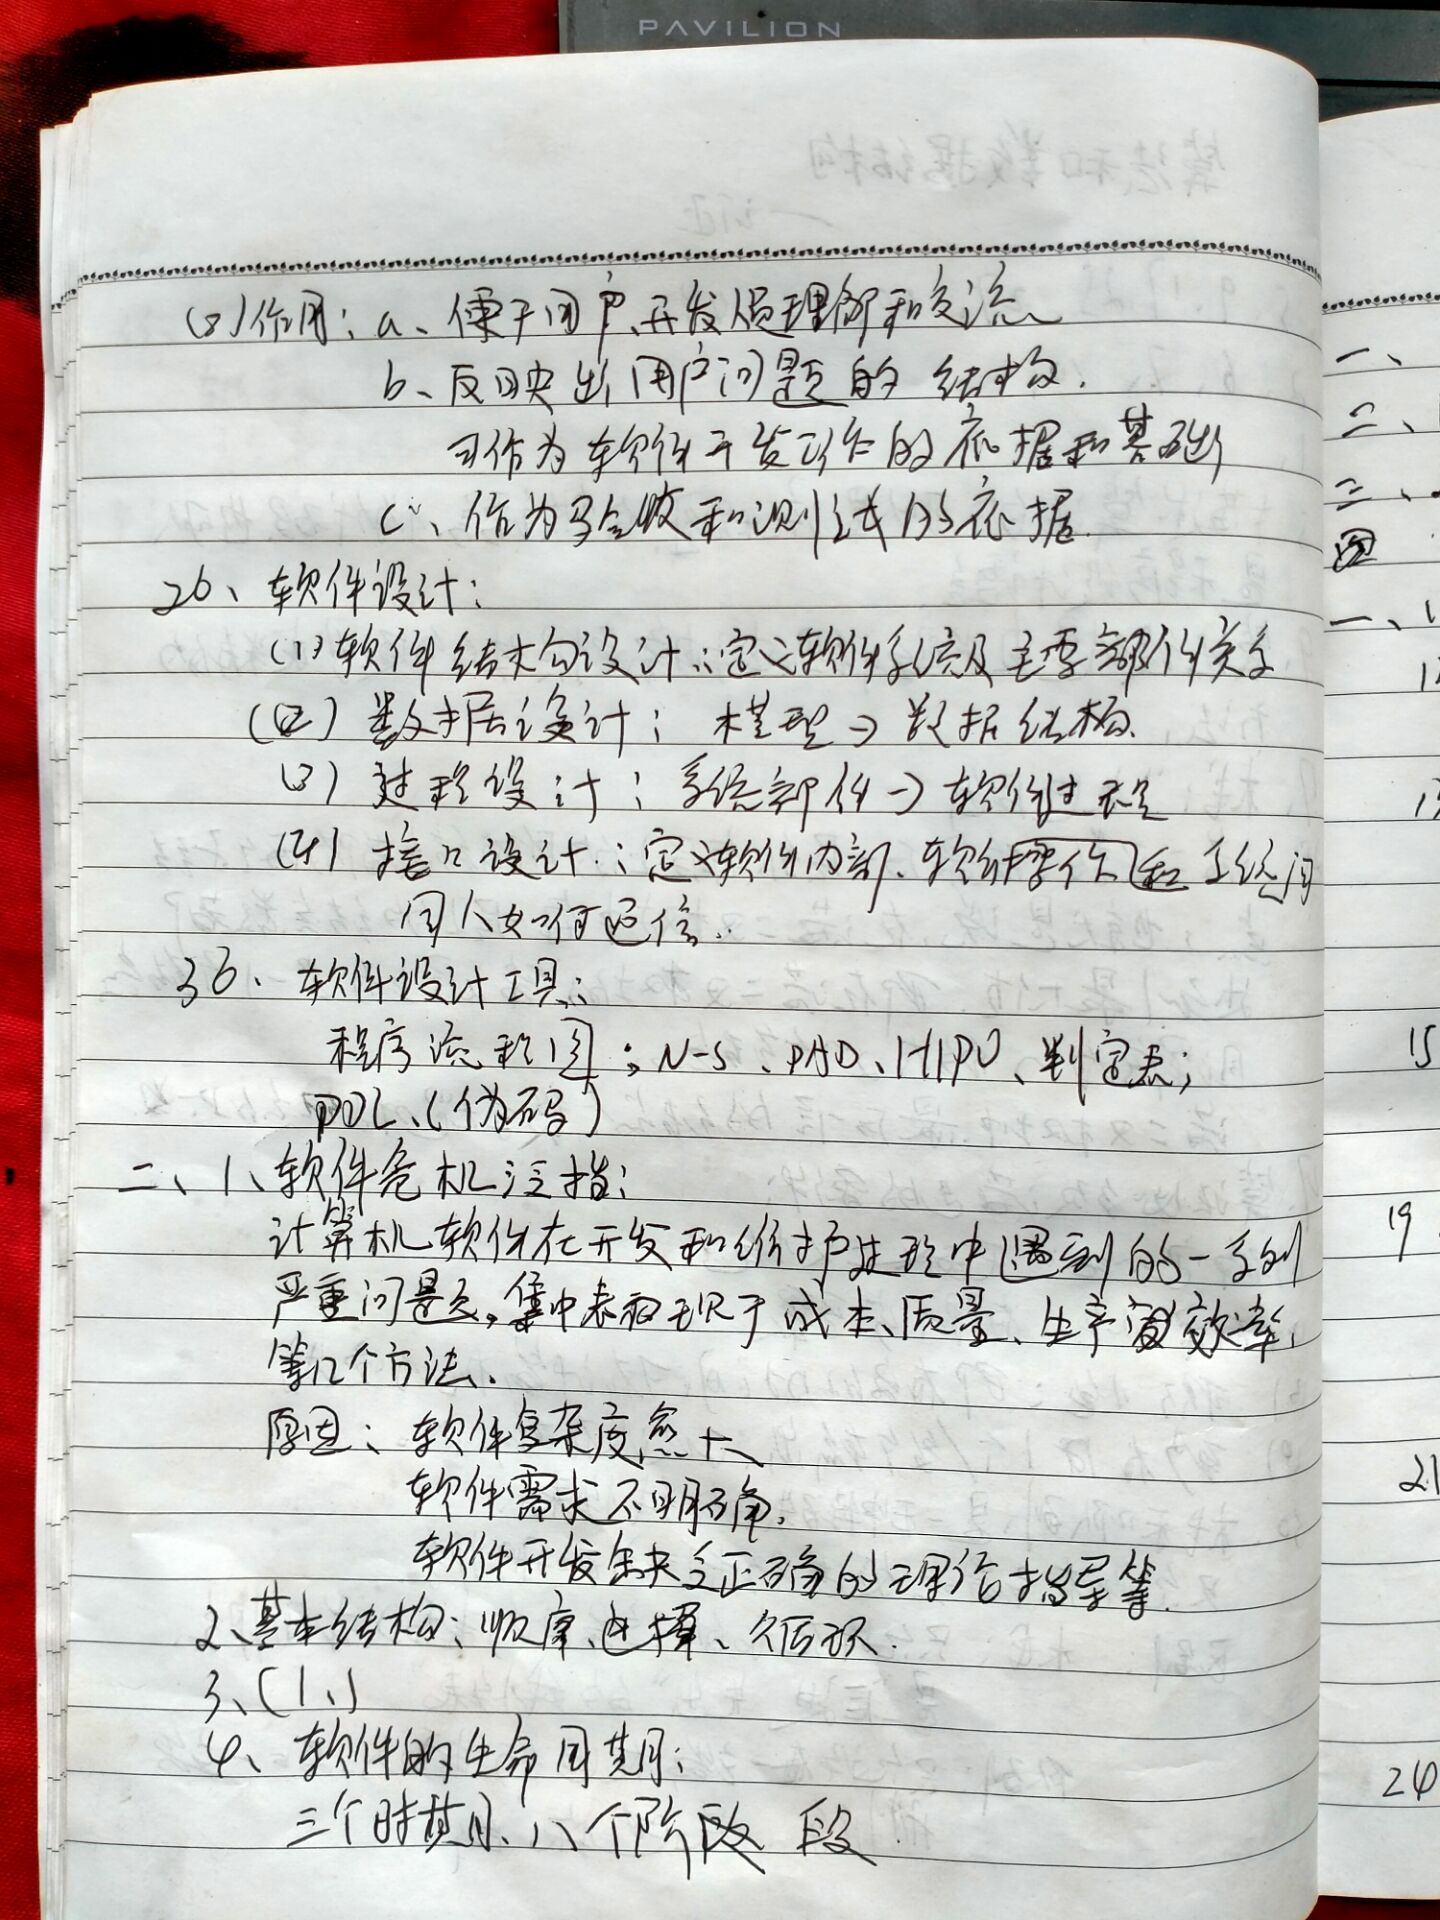 PAVILION
(2)作用：a、便于用户、开发人员理解和交流
b、反映出用户问题的结构.
可作为软件开发工作的依据和基础
c、作为验收和测试的依据.
26、软件设计：
(1)软件结构设计：定义软件系统及主要部件关系
(2)数据设计：模型→数据结构.
(3)过程设计：系统部件→软件过程
(4)接口设计：定义软件内部、软件操作和系统间
同人如何通信.
36、软件设计工具：
程序流程图；N-S、PAD、HIPO、判定表；
PDL、(伪码)
二、1、软件危机泛指：
计算机软件在开发和维护过程中遇到的一系列
严重问题，集中表现于成本、质量、生产效率、
等几个方法.
原因：软件复杂度愈大
软件需求不明确.
软件开发缺乏正确的理论指导等.
2、基本结构：顺序、选择、循环.
3、(1、)
4、软件的生命周期：
三个时期、八个阶段 段
一、
二、
三、
四
一、
15
19
21
24